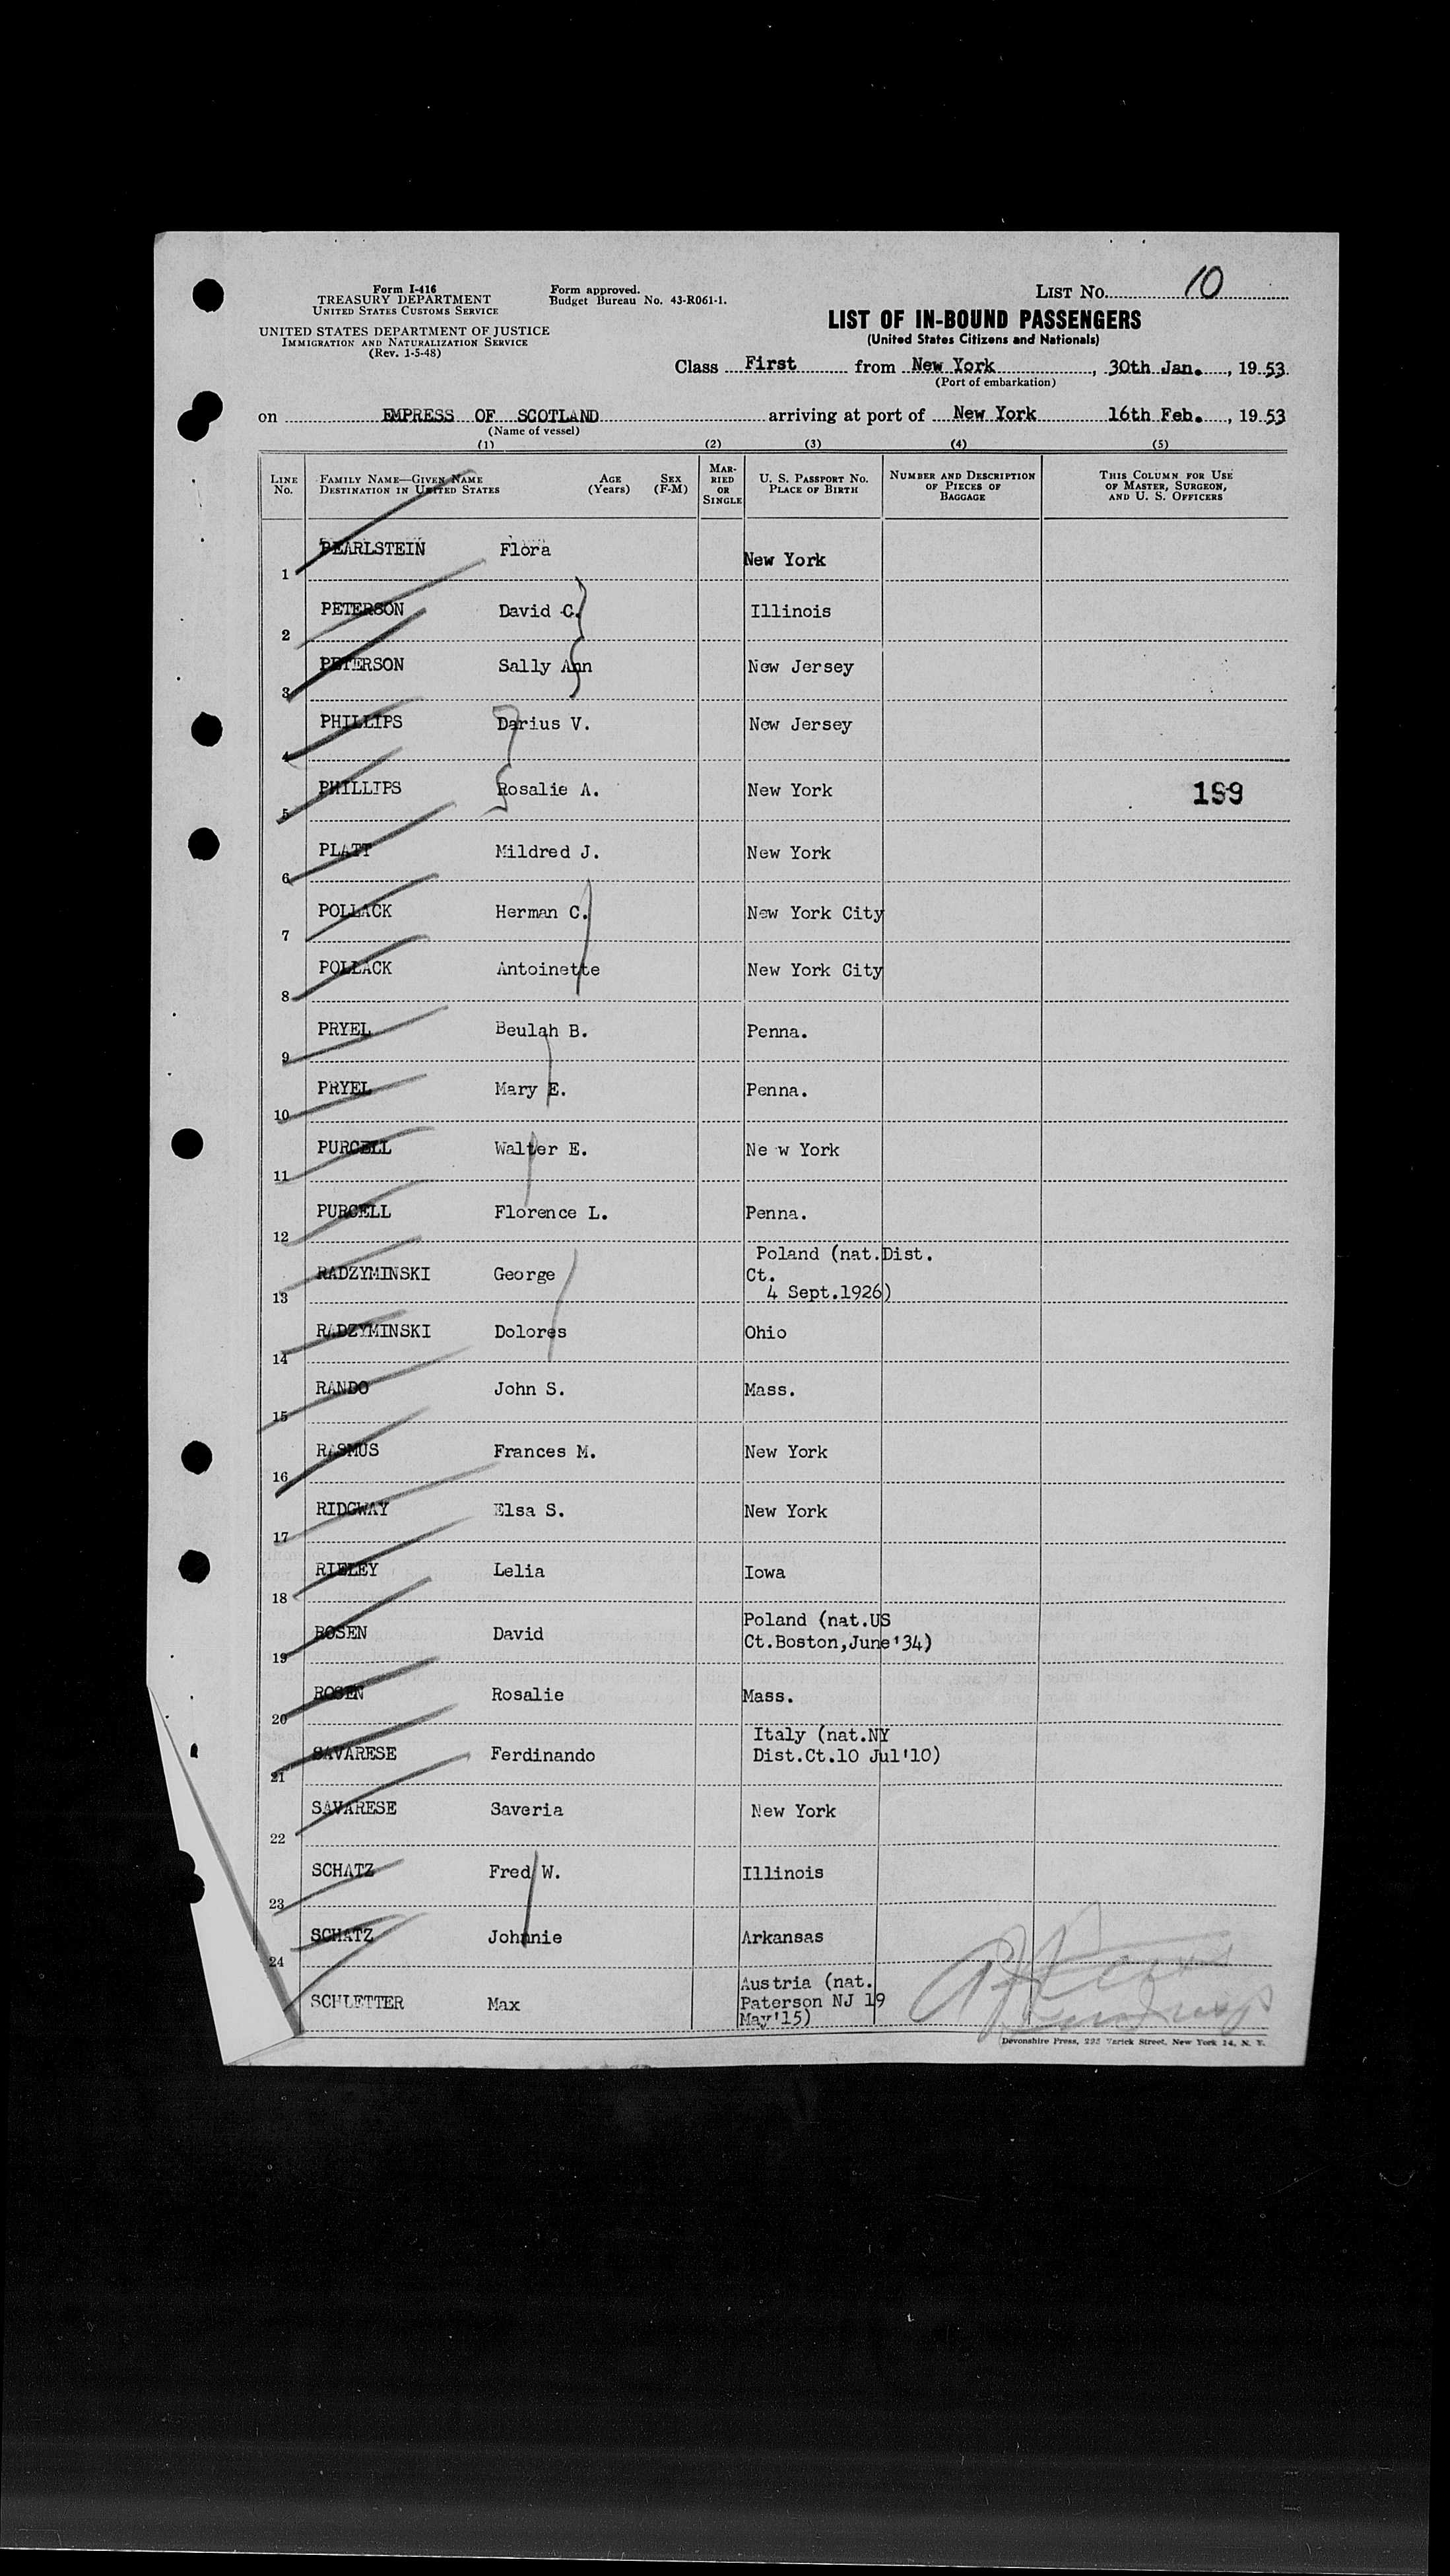 Form I-416
TREASURY DEPARTMENT
UNITED STATES CUSTOMS SERVICE
UNITED STATES DEPARTMENT OF JUSTICE
IMMIGRATION AND NATURALIZATION SERVICE
(Rev. 1-5-48)
Form approved.
Budget Bureau No. 43-R061-1.
LIST No. 10
LIST OF IN-BOUND PASSENGERS
(United States Citizens and Nationals)
Class First from New York, 30th Jan., 1953.
(Port of embarkation)
on EMPRESS OF SCOTLAND arriving at port of New York 16th Feb., 1953
(Name of vessel)
(1) (2) (3) (4) (5)
LINE No.
FAMILY NAME—GIVEN NAME
DESTINATION IN UNITED STATES
AGE (Years)
SEX (F-M)
MARRIED OR SINGLE
U. S. PASSPORT No.
PLACE OF BIRTH
NUMBER AND DESCRIPTION OF PIECES OF BAGGAGE
THIS COLUMN FOR USE OF MASTER, SURGEON, AND U. S. OFFICERS
1 PEARLSTEIN Flora New York
2 PETERSON David C. Illinois
3 PETERSON Sally Ann New Jersey
4 PHILLIPS Darius V. New Jersey
5 PHILLIPS Rosalie A. New York 199
6 PLATT Mildred J. New York
7 POLLACK Herman C. New York City
8 POLLACK Antoinette New York City
9 PRYEL Beulah B. Penna.
10 PRYEL Mary E. Penna.
11 PURCELL Walter E. Ne w York
12 PURCELL Florence L. Penna.
13 RADZYMINSKI George Poland (nat.Dist.
Ct.
4 Sept.1926)
14 RADZYMINSKI Dolores Ohio
15 RANDO John S. Mass.
16 RASMUS Frances M. New York
17 RIDGWAY Elsa S. New York
18 RIELEY Lelia Iowa
19 ROSEN David Poland (nat.US
Ct.Boston,June'34)
20 ROSEN Rosalie Mass.
21 SAVARESE Ferdinando Italy (nat.NY
Dist.Ct.10 Jul'10)
22 SAVARESE Saveria New York
23 SCHATZ Fred W. Illinois
24 SCHATZ Johnnie Arkansas
SCHLETTER Max Austria (nat.
Paterson NJ 19
May'15)
Devonshire Press, 225 Varick Street, New York 14, N. Y.